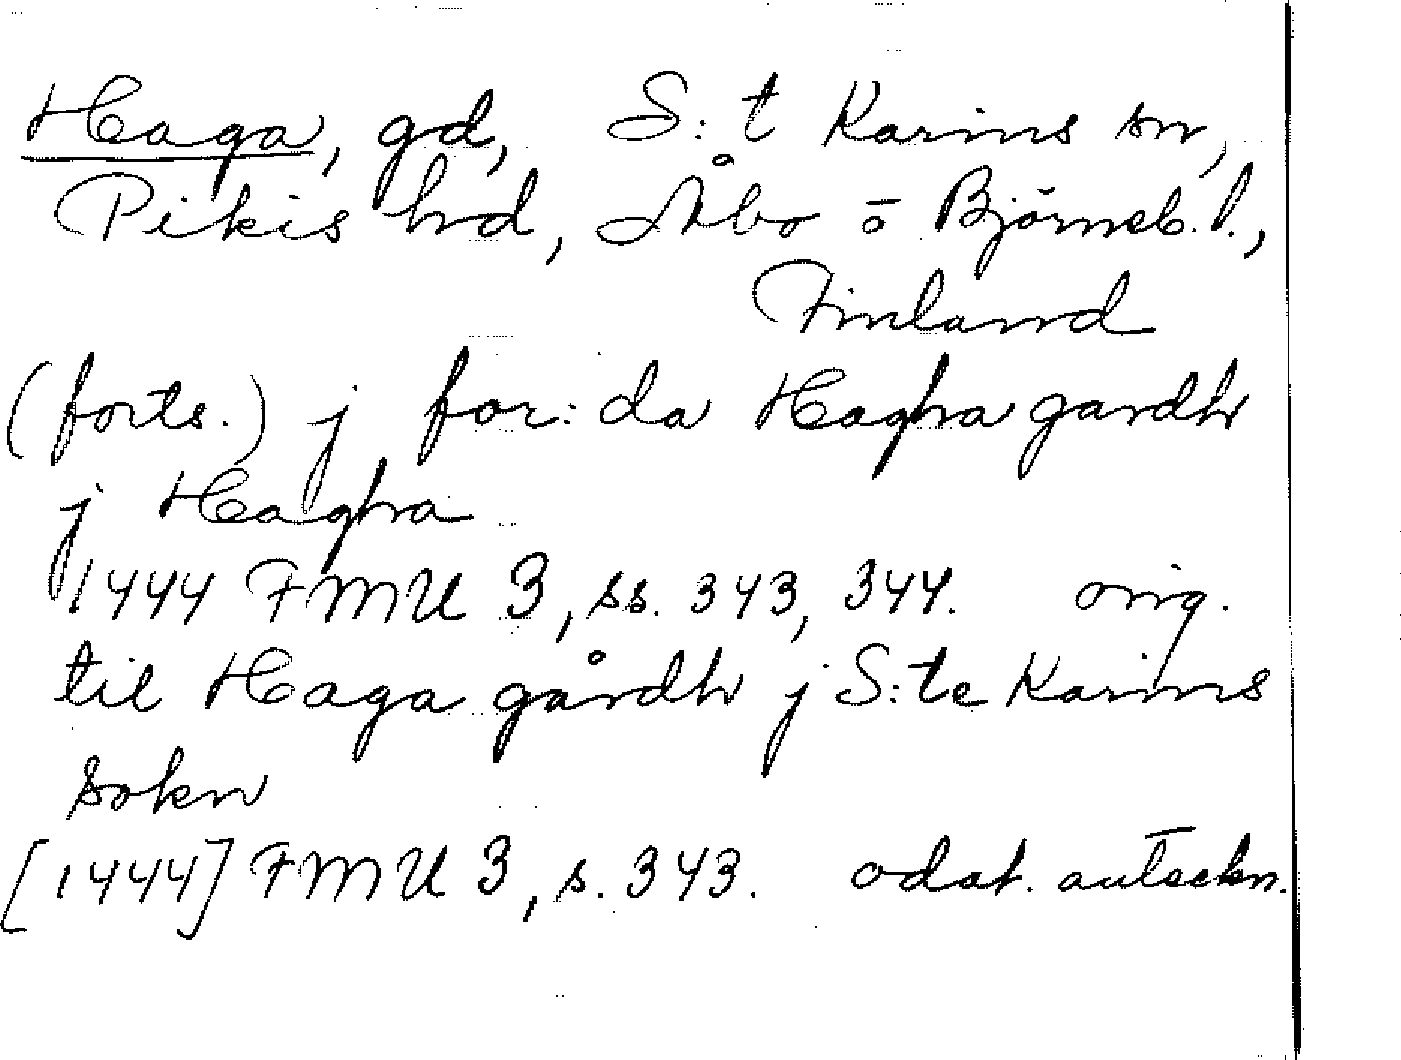 Haga, gd, S:t Karins sn,
Pikis hd, Åbo o Björneb. l.,
Finland
(forts.) j for:da Haghagardh
j Hagha
1444 FMU 3, ss. 343, 344. orig.
til Haga gårdh j S:te Karins
sokn
[1444] FMU 3, s. 343. odat. anteckn.